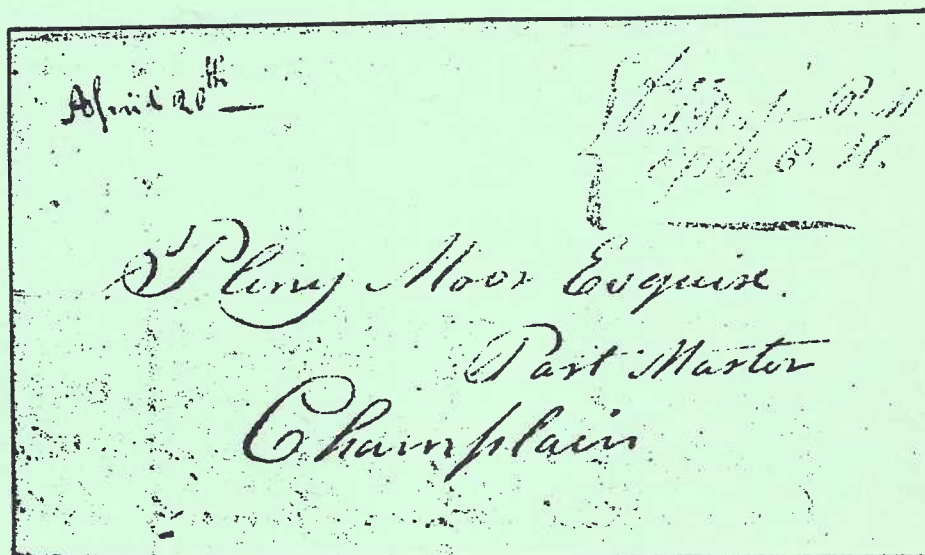 April 20th
Pliny Moor Esquire.
Post Master
Champlain